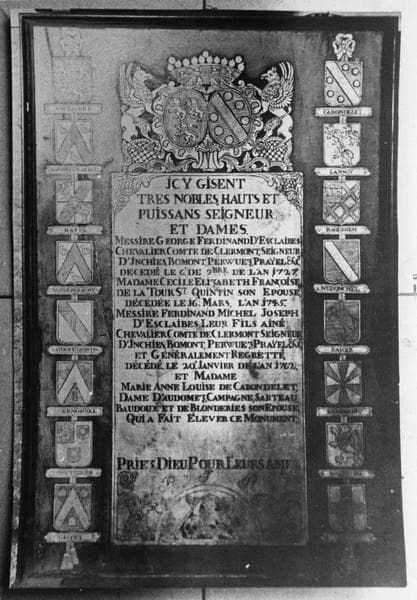 JCY GISENT
TRES NOBLES, HAUTS ET
PUISSANS SEIGNEUR
ET DAMES.
MESSIRE GEORGE FERDINAND D'ESCLAIBES
CHEVALIER COMTE DE CLERMONT, SEIGNEUR
D'INCHIES, BOMONT, PERWUEZ, PRAYEL, &C
DECEDÉ LE 6 DE 9BRE DE L'AN 1727.
MADAME CECILE ELISABETH FRANÇOISE
DE LA TOUR ST QUINTIN SON EPOUSE
DÉCÉDÉE LE 16 MARS, L'AN 1745.
MESSIRE FERDINAND MICHEL JOSEPH
D'ESCLAIBES LEUR FILS AÎNÉ
CHEVALIER COMTE DE CLERMONT SEIGNEUR
D'INCHIES, BOMONT, PERWUEZ, PRAYEL &C
ET GÉNÉRALEMENT REGRETTÉ
DÉCÉDÉ, LE 20 JANVIER DE L'AN
ET MADAME
MARIE ANNE LOUISE DE CARONDELET,
DAME D'AUDOMEZ, CAMPAGNE, SARTEAU
BAUDOUE ET DE BLONDERIES SON EPOUSE
QUI A FAIT ELEVER CE MONUMENT
PRIEZ DIEU POUR LEURS AMES
LA TOUR ST QUINTIN
BERNONVAL
CARONDELE
LANNOY